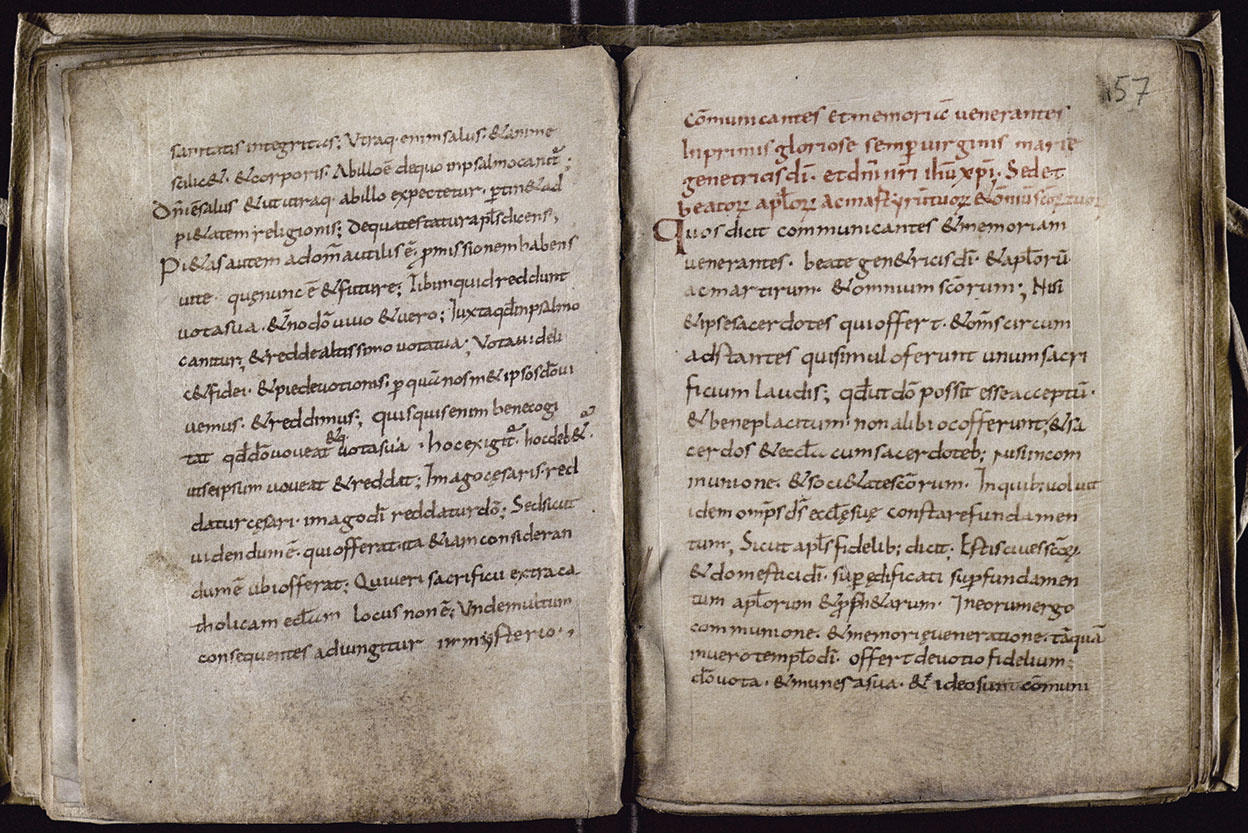 sanitatis integritas; Utraq. enim salus. & anime
scilic&. & corporis; Ab illo ē de quo in psalmo canit̄;
Dn̄i ē salus & ut utraq; ab illo expectetur. ꝑtin& ad
pi&atem religionis; De qua testatur apl̄s dicens;
Pi&as autem ad om̄a utilis ē. ꝓmissionem habens
uite quę nunc ē & future; Tibi inquid reddunt
uota sua. &n̄o dō uiuo & uero; Iuxta qđ in psalmo
canitur; & redde altissimo uota tua; Vota uideli
c& fidei. & pie devotionis. ꝑ quā nosm& ipsos dō vi
uemus. & reddimus; Quisquis enim bene cogi
tat qđ dō voveat &q; uota sua. hoc exigit̄. hoc deb&.
ut seipsum uoueat & reddat; Imago cęsaris. red
datur cęsari. imago dī reddatur dō; Sed sicut
uidendum ē. qui offerat. ita &iam consideran
dum ē ubi offerat; Qui ueri sacrificii extra ca
tholicam eccl̄am locus non ē; Unde multum
consequentes adiungitur in mysterio.,
157
Cōmunicantes et memoriā venerantes
Inprimis gloriose semꝑ virginis marie
genetricis dī. et dn̄i nr̄i ihū xp̄i. Sed et
beatorꝝ apl̄orꝝ ac martyrū tuorꝝ & om̄iū sc̄orꝝ tuorꝝ
Quos dicit communicantes & memoriam
venerantes. beate gen&ricis dī. & apl̄orū
ac martirum. & omnium sc̄orum; Nisi
& ipse sacerdotes qui offert. & om̄s circum
adstantes qui simul oferunt unum sacri
ficium laudis; qđ ut dō possit esse acceptū.
& beneplacitum. non alibi ocofferunt; & sa
cerdos & eccl̄a cum sacerdoteb; nisi in com
munione. & soci&ate sc̄orum. In quib; voluit
idem omps ds̄ ecclęsię constare fundamen
tum; Sicut apl̄s fidelib; dicit; Estis cives sc̄orꝝ
& domestici dī. suꝑędificati suꝑ fundamen
tum apl̄orum & ꝓph&arum. In eorum ergo
communione. & memorię veneratione. tāquā
in uero templo dī. offert devotio fidelium;
dō vota. & munera sua. & ideo sunt cōmuni